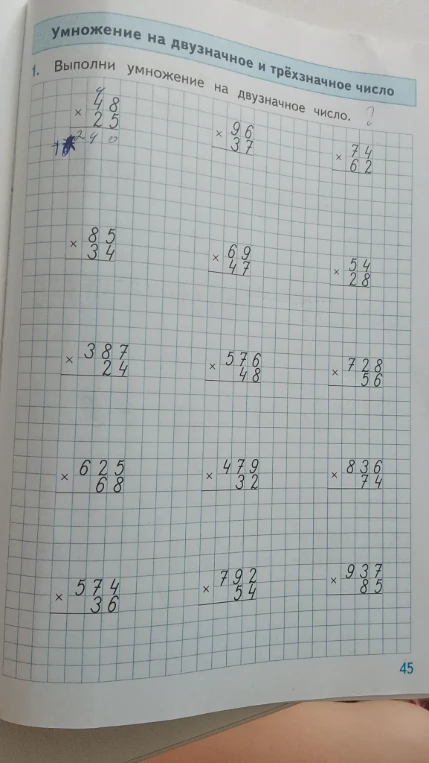 Умножение на двузначное и трёхзначное число
1. Выполни умножение на двузначное число. ?
4
× 48
25
240
× 96
37
× 74
62
× 85
34
× 69
47
× 54
28
× 387
24
× 576
48
× 728
56
× 625
68
× 479
32
× 836
74
× 574
36
× 792
54
× 937
85
45